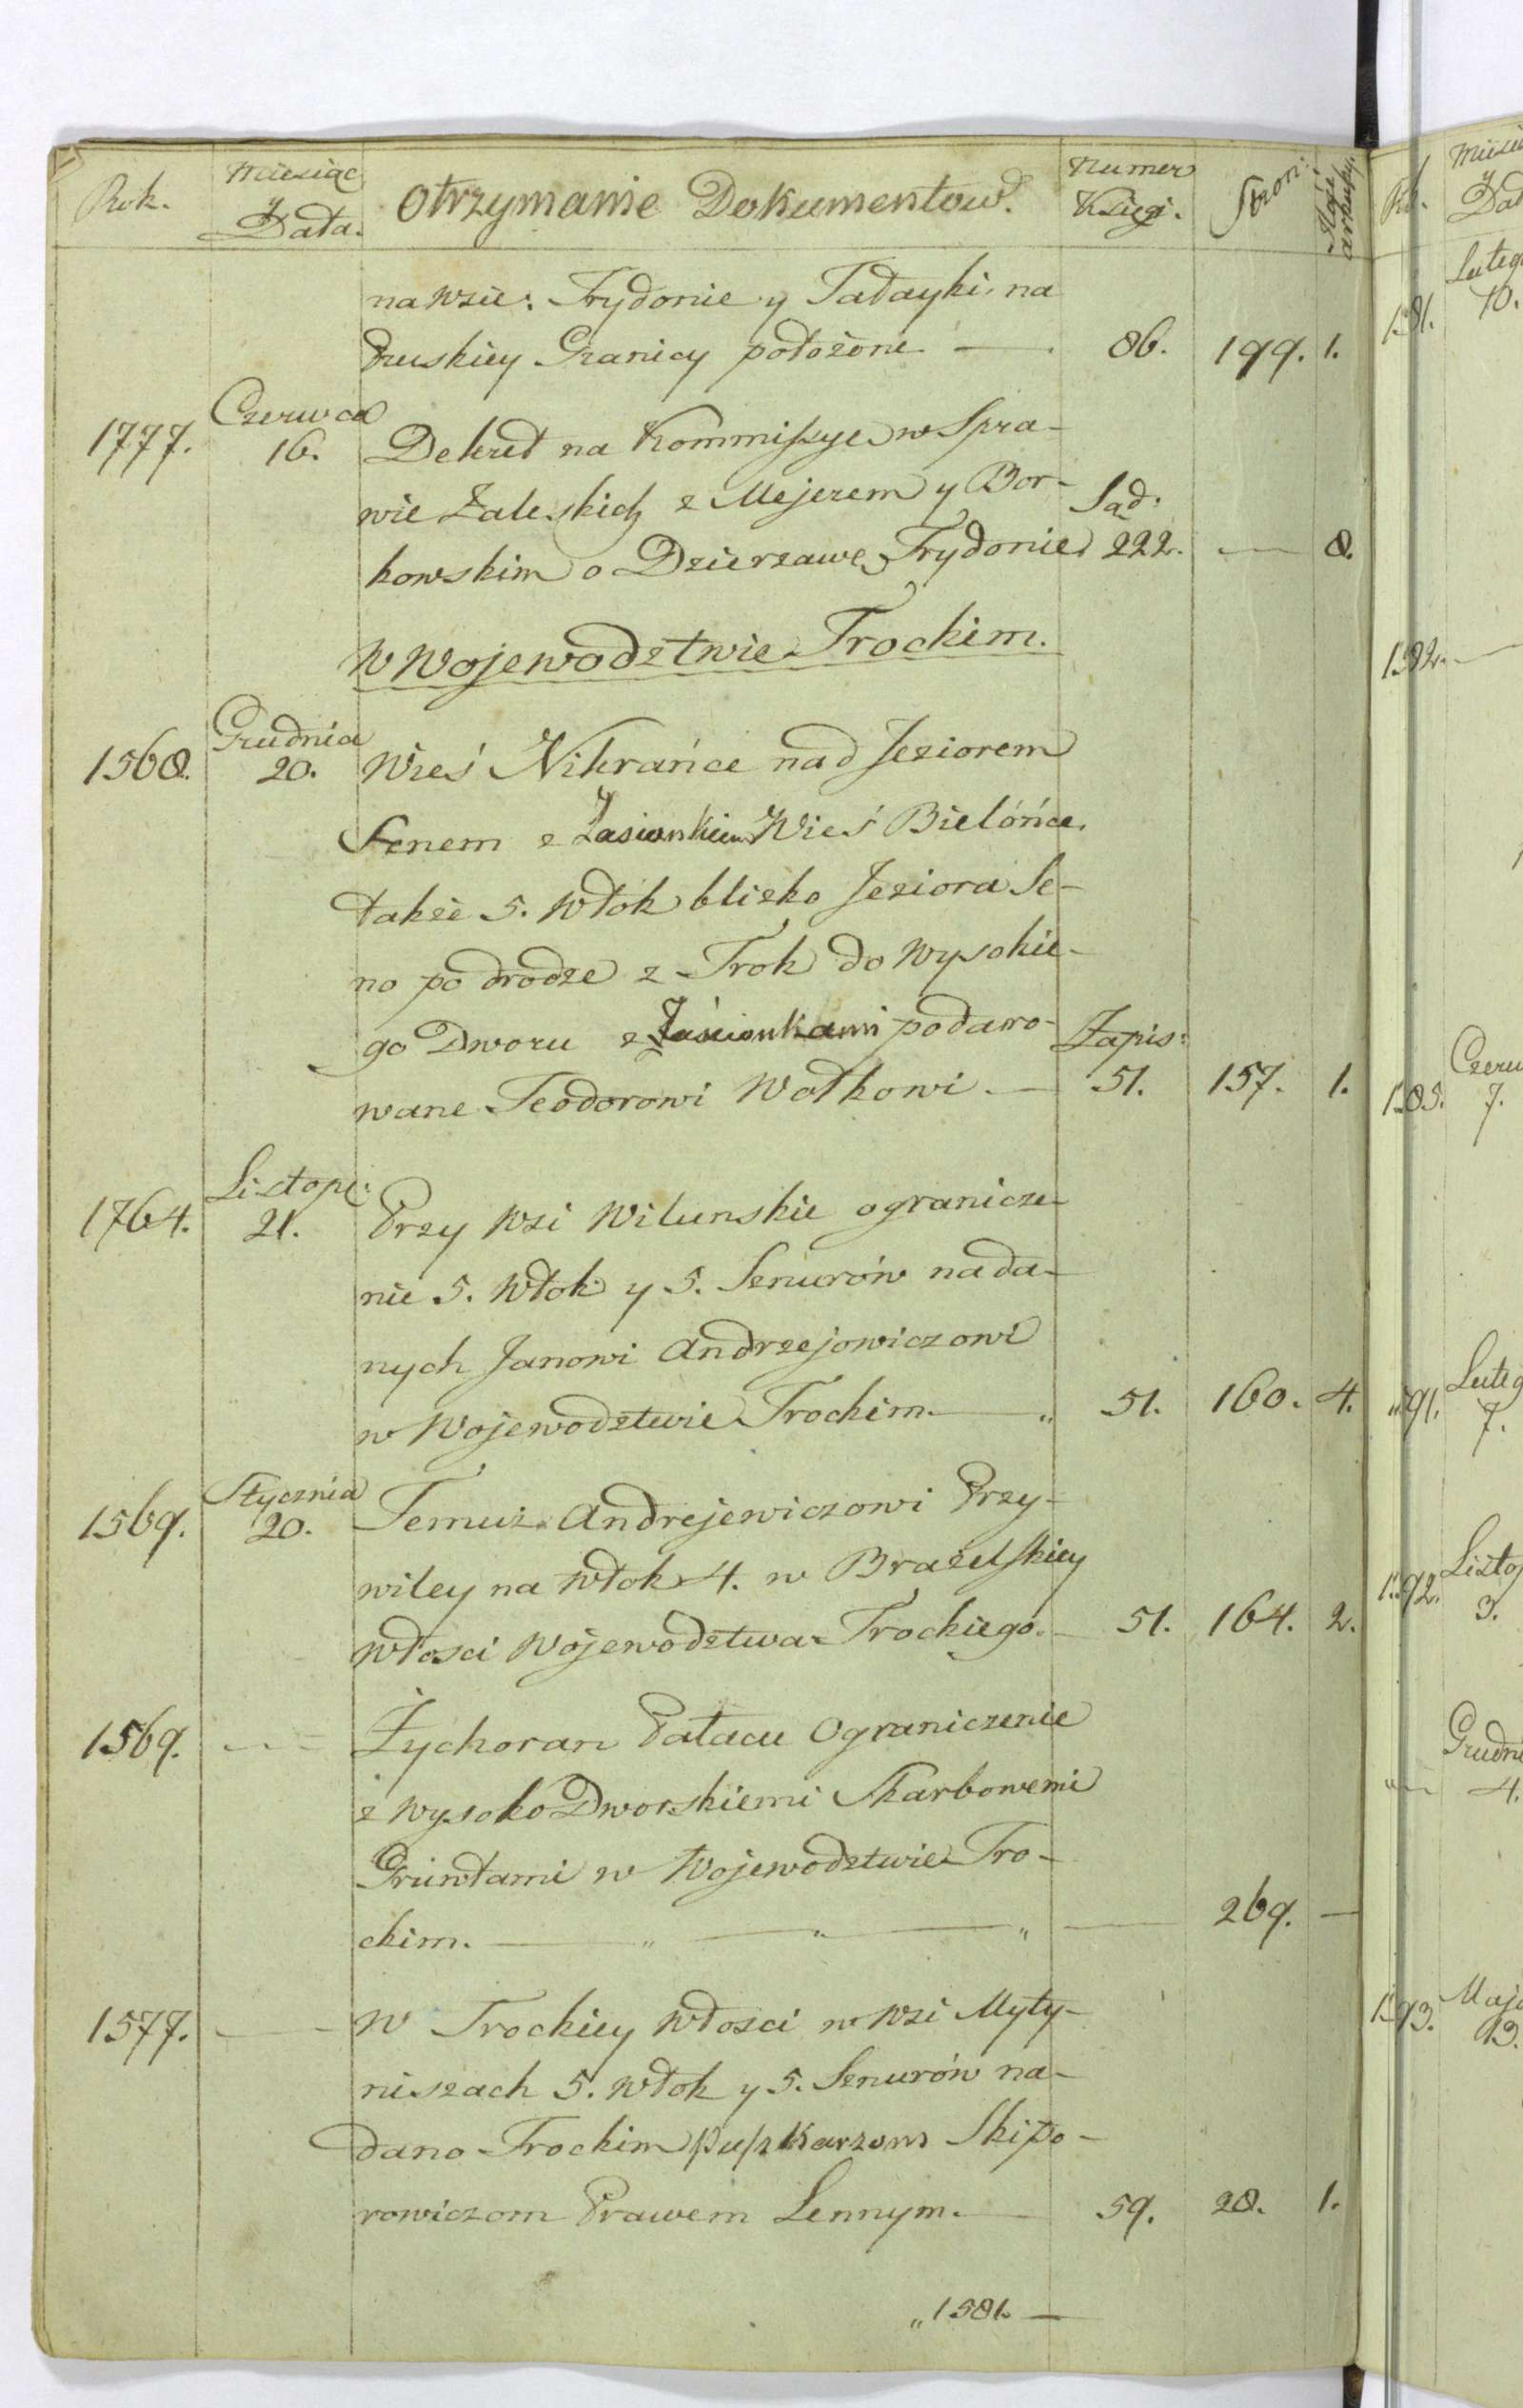 Rok. Miesiąc y Data. Otrzymanie Dokumentow. Numer Księgi. Stron: Ilość arkuszy.
na wsie: Frydonie y Tadayki na
Pruskiey Granicy położone — 86. 199. 1.
1777. Czerwca 16. Dekret na Kommissye w Spra-
wie Zaleskich z Mejerem y Bor- Sąd:
kowskim o Dzierzawę Frydonie 222. — 8.
W Wojewodztwie Trockim.
1568. Grudnia 20. Wieś Nikrańce nad Jeziorem
Senem z Zasiankiem Wieś Bielóńce,
także 5. Włok blizko Jeziora Se-
no po drodze z Trok do Wysokie-
go Dworu z Zaścionkami podaro- Zapis:
wane Teodorowi Wołkowi — 51. 157. 1.
1764. Listop: 21. Przy Wsi Wilunskie ogranicze-
nie 5. Włok y 5. Sznurów nada-
nych Janowi Andrzejowiczowi
w Wojewodztwie Trockim — " 51. 160. 4.
1569. Stycznia 20. Temuż Andrejewiczowi Przy-
wiley na Włok 4. w Brazelskiey
Włosci Wojewodztwa Trockiego. — 51. 164. 2.
1569. — Żychoran Pałacu Ograniczenie
z Wysoko Dworskiemi Skarbowemi
Gruntami w Wojewodztwie Tro-
ckim. — " — " — " — 269. —
1577. — W Trockiey Włosci w Wsi Myty-
niszach 5. Włok y 5. Sznurów na-
dano Trockim Puszkarzom Skipo-
rowiczom Prawem Lennym. — 59. 28. 1.
" 1581. —